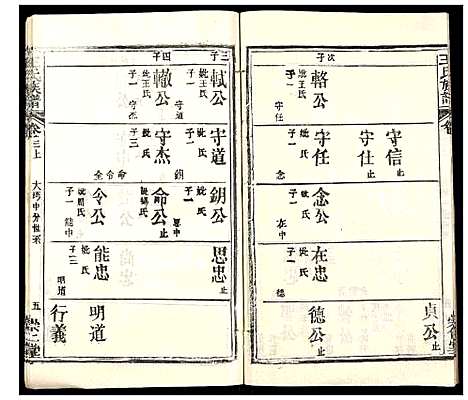 王氏族譜
卷
次子
輅公
子一
守任
守信止
守仕止
守任
子一
念
念公
子一
在中
在忠
子一
德
貞公止
德公止
三子
軾公
妣王氏
子一
守道
四子
轍公
妣王氏
子一
守杰
守道
妣氏
子一
鈅
守杰
妣氏
子三
命令全
鈅公
妣氏
子一
思中
命公止
令公
子一
能中
思忠止
能忠
妣氏
子二
明道
行義
氏族譜
卷三上
大巧中分世系
五